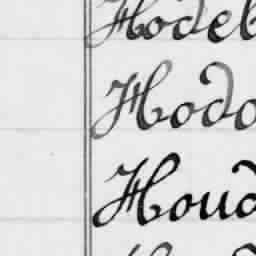 Hodel
Hodo
Houd